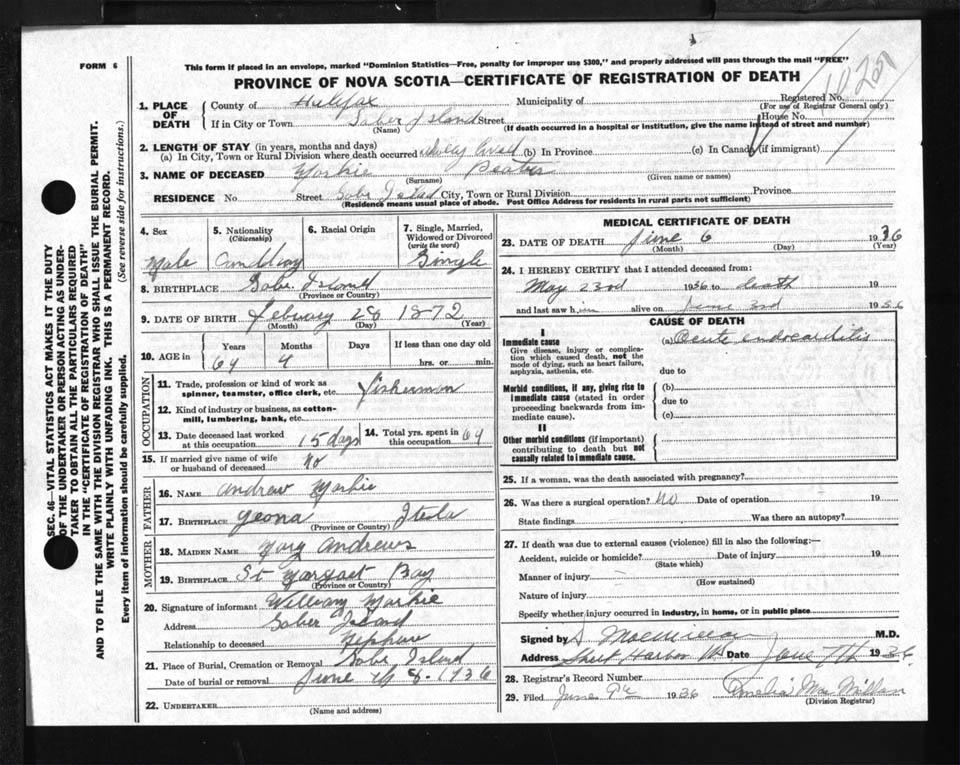 FORM 6
This form if placed in an envelope, marked "Dominion Statistics—Free, penalty for improper use $300," and properly addressed will pass through the mail "FREE"
PROVINCE OF NOVA SCOTIA—CERTIFICATE OF REGISTRATION OF DEATH
SEC. 46—VITAL STATISTICS ACT MAKES IT THE DUTY
OF THE UNDERTAKER OR PERSON ACTING AS UNDER-
TAKER TO OBTAIN ALL THE PARTICULARS REQUIRED
IN THE "CERTIFICATE OF REGISTRATION OF DEATH"
AND TO FILE THE SAME WITH THE DIVISION REGISTRAR WHO SHALL ISSUE THE BURIAL PERMIT.
WRITE PLAINLY WITH UNFADING INK. THIS IS A PERMANENT RECORD.
Every item of information should be carefully supplied. (See reverse side for instructions.)
1. PLACE OF DEATH
County of Halifax Municipality of Registered No.
(For use of Registrar General only)
If in City or Town Saber Island Street House No.
(Name) (If death occurred in a hospital or institution, give the name instead of street and number)
2. LENGTH OF STAY (in years, months and days)
(a) In City, Town or Rural Division where death occurred (b) In Province (c) In Canada (if immigrant)
3. NAME OF DECEASED Yorkie
(Surname) (Given name or names)
RESIDENCE No Street City, Town or Rural Division Province
(Residence means usual place of abode. Post Office Address for residents in rural parts not sufficient)
4. Sex
5. Nationality
(Citizenship)
6. Racial Origin
7. Single, Married, Widowed or Divorced
(write the word)
Male
8. BIRTHPLACE
(Province or Country)
9. DATE OF BIRTH February 28 1872
(Month) (Day) (Year)
10. AGE in Years Months Days If less than one day old
64 4 hrs. or min.
OCCUPATION
11. Trade, profession or kind of work as
spinner, teamster, office clerk, etc. fisherman
12. Kind of industry or business, as cotton-
mill, lumbering, bank, etc.
13. Date deceased last worked
at this occupation 15 days
14. Total yrs. spent in
this occupation 64
15. If married give name of wife
or husband of deceased no
FATHER
16. NAME Andrew Yorkie
17. BIRTHPLACE
(Province or Country)
MOTHER
18. MAIDEN NAME Mary Andrews
19. BIRTHPLACE St Margaret Bay
(Province or Country)
20. Signature of informant William Yorkie
Address Saber Island
Relationship to deceased Nephew
21. Place of Burial, Cremation or Removal
Date of burial or removal June 8 1936
22. UNDERTAKER
(Name and address)
MEDICAL CERTIFICATE OF DEATH
23. DATE OF DEATH June 6 1936
(Month) (Day) (Year)
24. I HEREBY CERTIFY that I attended deceased from:
May 23rd 1936 to death 19
and last saw him alive on June 3rd 1936
CAUSE OF DEATH
I
Immediate cause
Give disease, injury or complica-
tion which caused death, not the
mode of dying, such as heart failure,
asphyxia, asthenia, etc.
(a) Acute endocarditis
due to
Morbid conditions, if any, giving rise to
immediate cause (stated in order
proceeding backwards from im-
mediate cause).
(b)
due to
(c)
II
Other morbid conditions (if important)
contributing to death but not
causally related to immediate cause.
25. If a woman, was the death associated with pregnancy?
26. Was there a surgical operation? no Date of operation 19
State findings Was there an autopsy?
27. If death was due to external causes (violence) fill in also the following:—
Accident, suicide or homicide? Date of injury 19
(State which)
Manner of injury
(How sustained)
Nature of injury
Specify whether injury occurred in industry, in home, or in public place
Signed by M.D.
Address Sheet Harbor NS Date June 7th 1936
28. Registrar's Record Number
29. Filed June 1936 Amelia MacMillan
(Division Registrar)